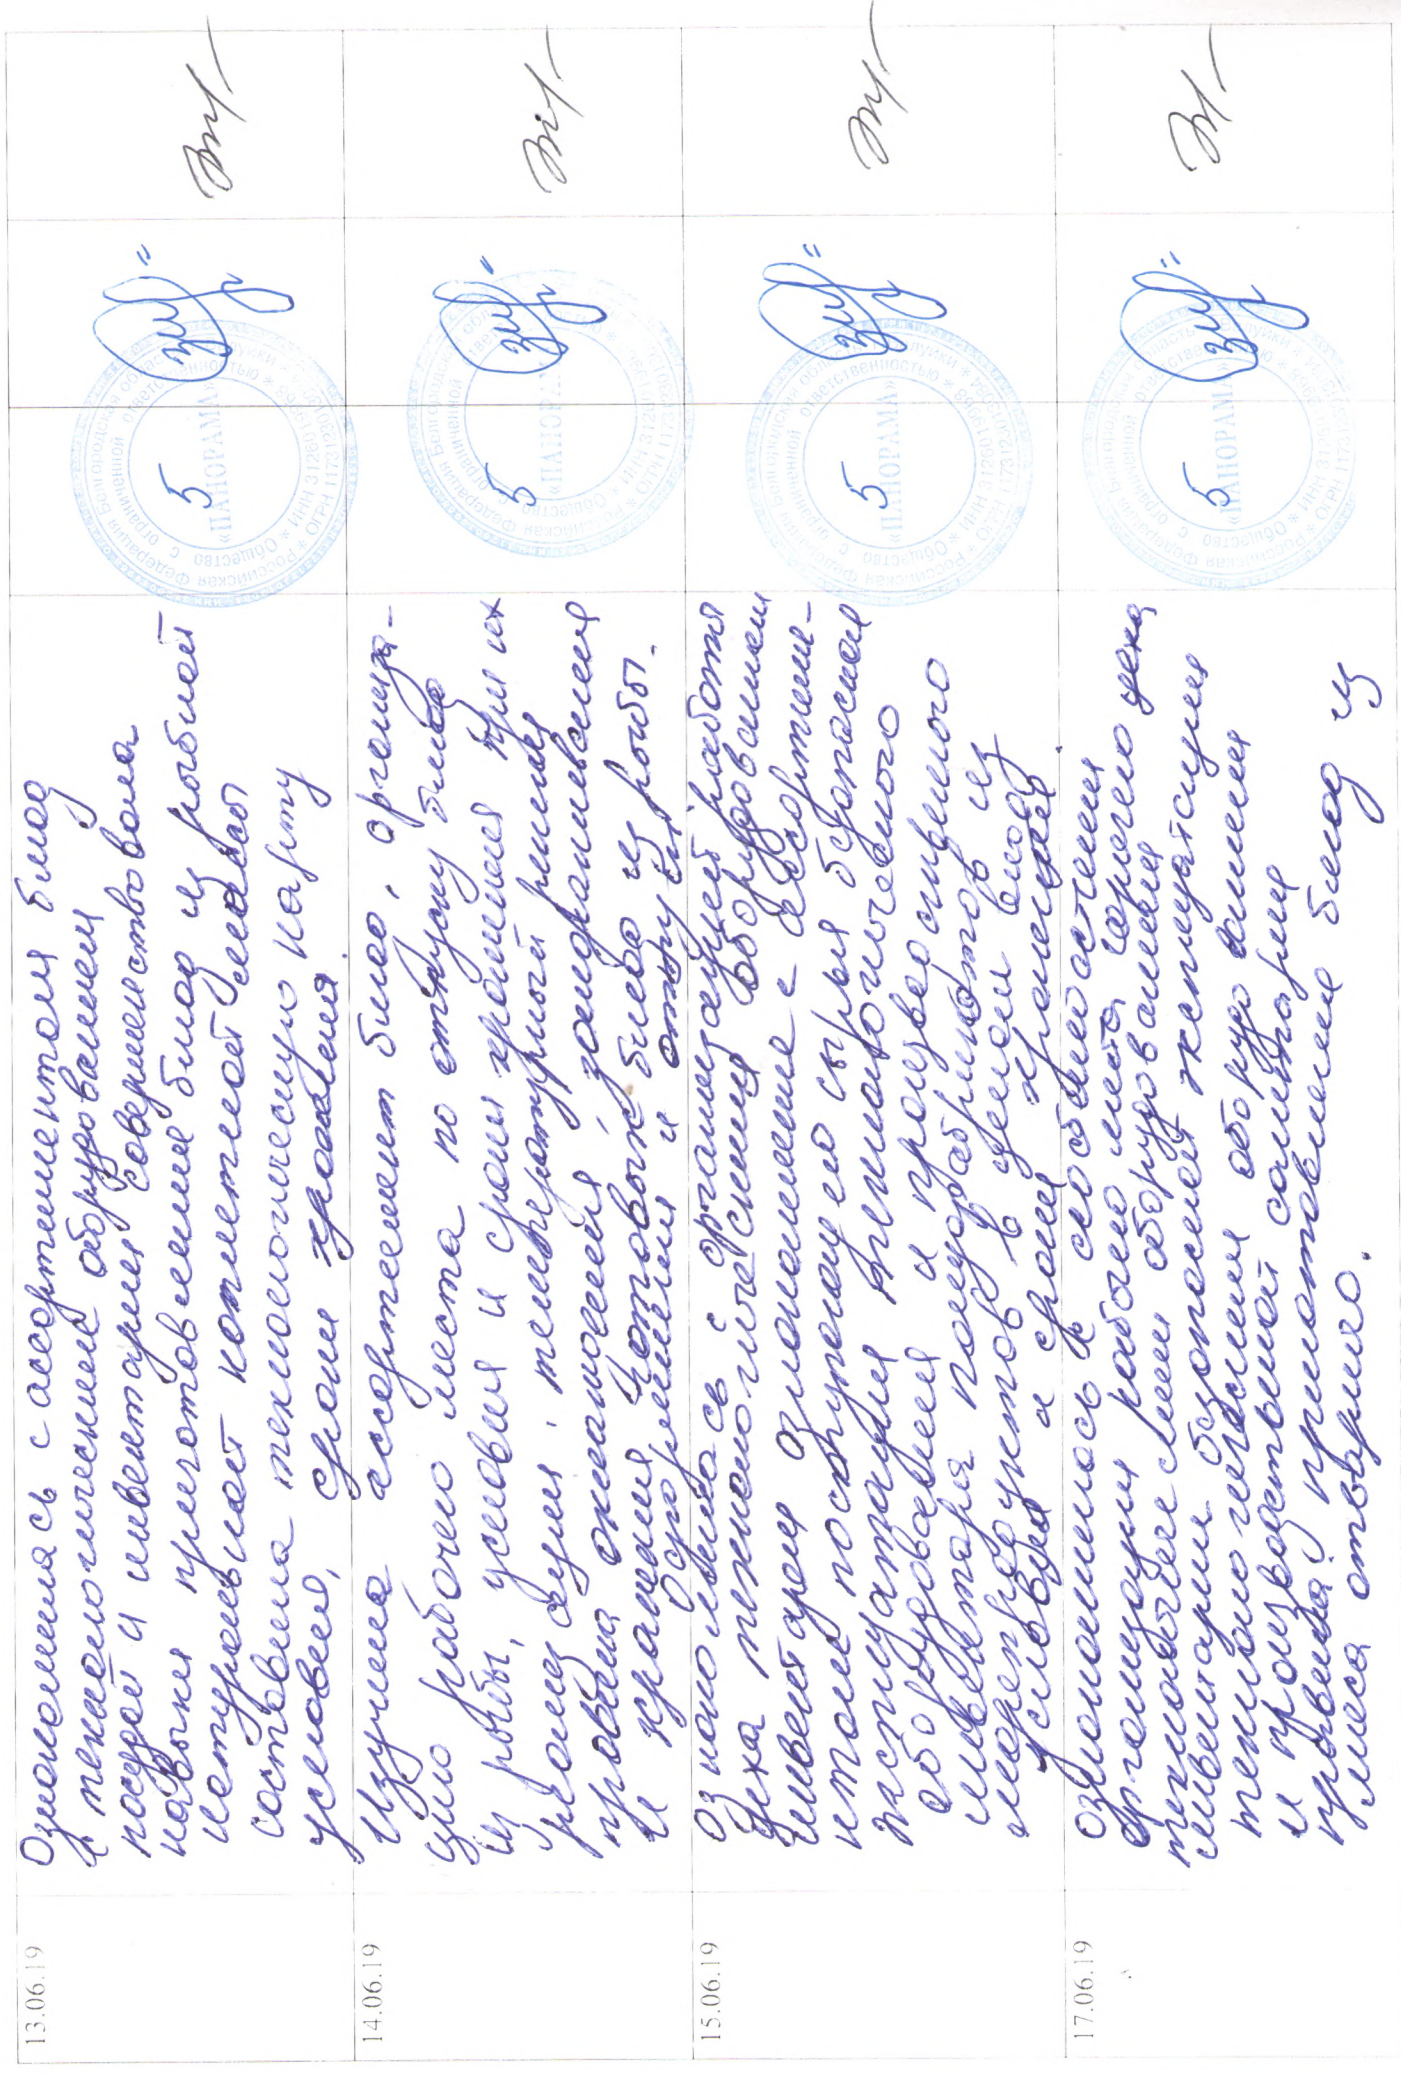 13.06.19
Ознакомилась с ассортиментом блюд
и технологическим оборудованием
посудой и инвентарём совершенствовала
навыки приготовления блюд из рыбной
натуральной котлетной массы
составила технологическую карту
условия, сроки хранения.
5
14.06.19
Изучила ассортимент блюд, организа-
цию рабочего места по отпуску блюд
из рыбы, условия и сроки хранения при их
реализации, температурный режим
провела охлаждения, замораживания
и хранения готовых блюд из рыбы.
Оформлении и отпуск
5
15.06.19
Ознакомилась с организацией работы
цеха технологическим оборудованием
инвентарем Ознакомление с ассортимен-
том поступающего сырья безопасной
эксплуатации технологического
оборудования и производственного
инвентаря полуфабрикатов из
морепродуктов в целом виде
условия и сроки хранения.
5
17.06.19
Ознакомилась с особенностями
организации рабочего места горячего цеха
технологическим оборудованием
инвентарём безопасной эксплуатации
технологического оборудования
и производственной санитарии
провела приготовление блюд из
мяса отварного.
5
Российская Федерация Белгородская область
Общество с ограниченной ответственностью
«ПАНОРАМА»